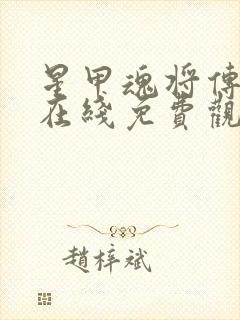 星甲魂将傳
在綫免費觀
趙梓斌